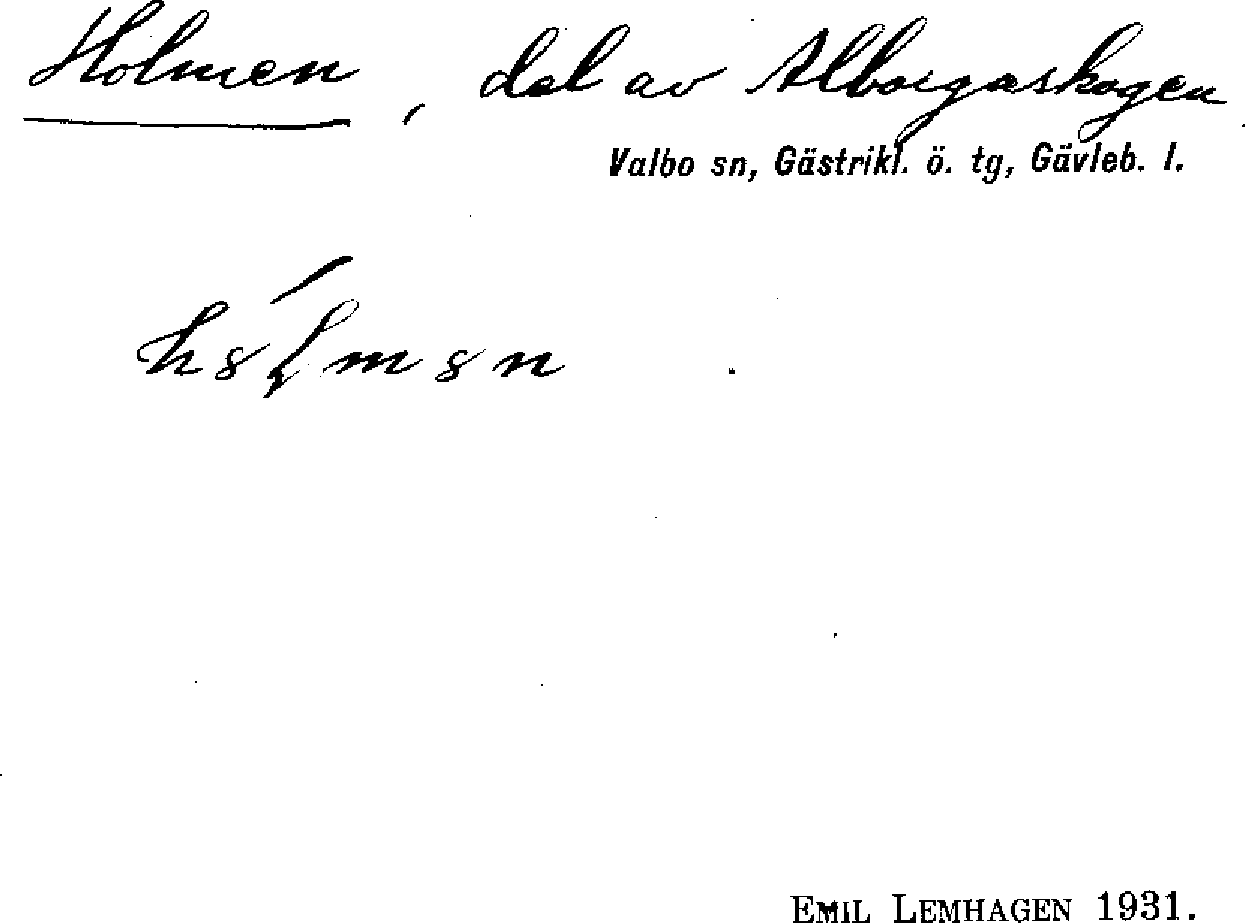 Holmen, del av Alborgaskogen
Valbo sn, Gästrikl. ö. tg, Gävleb. l.
EMIL LEMHAGEN 1931.